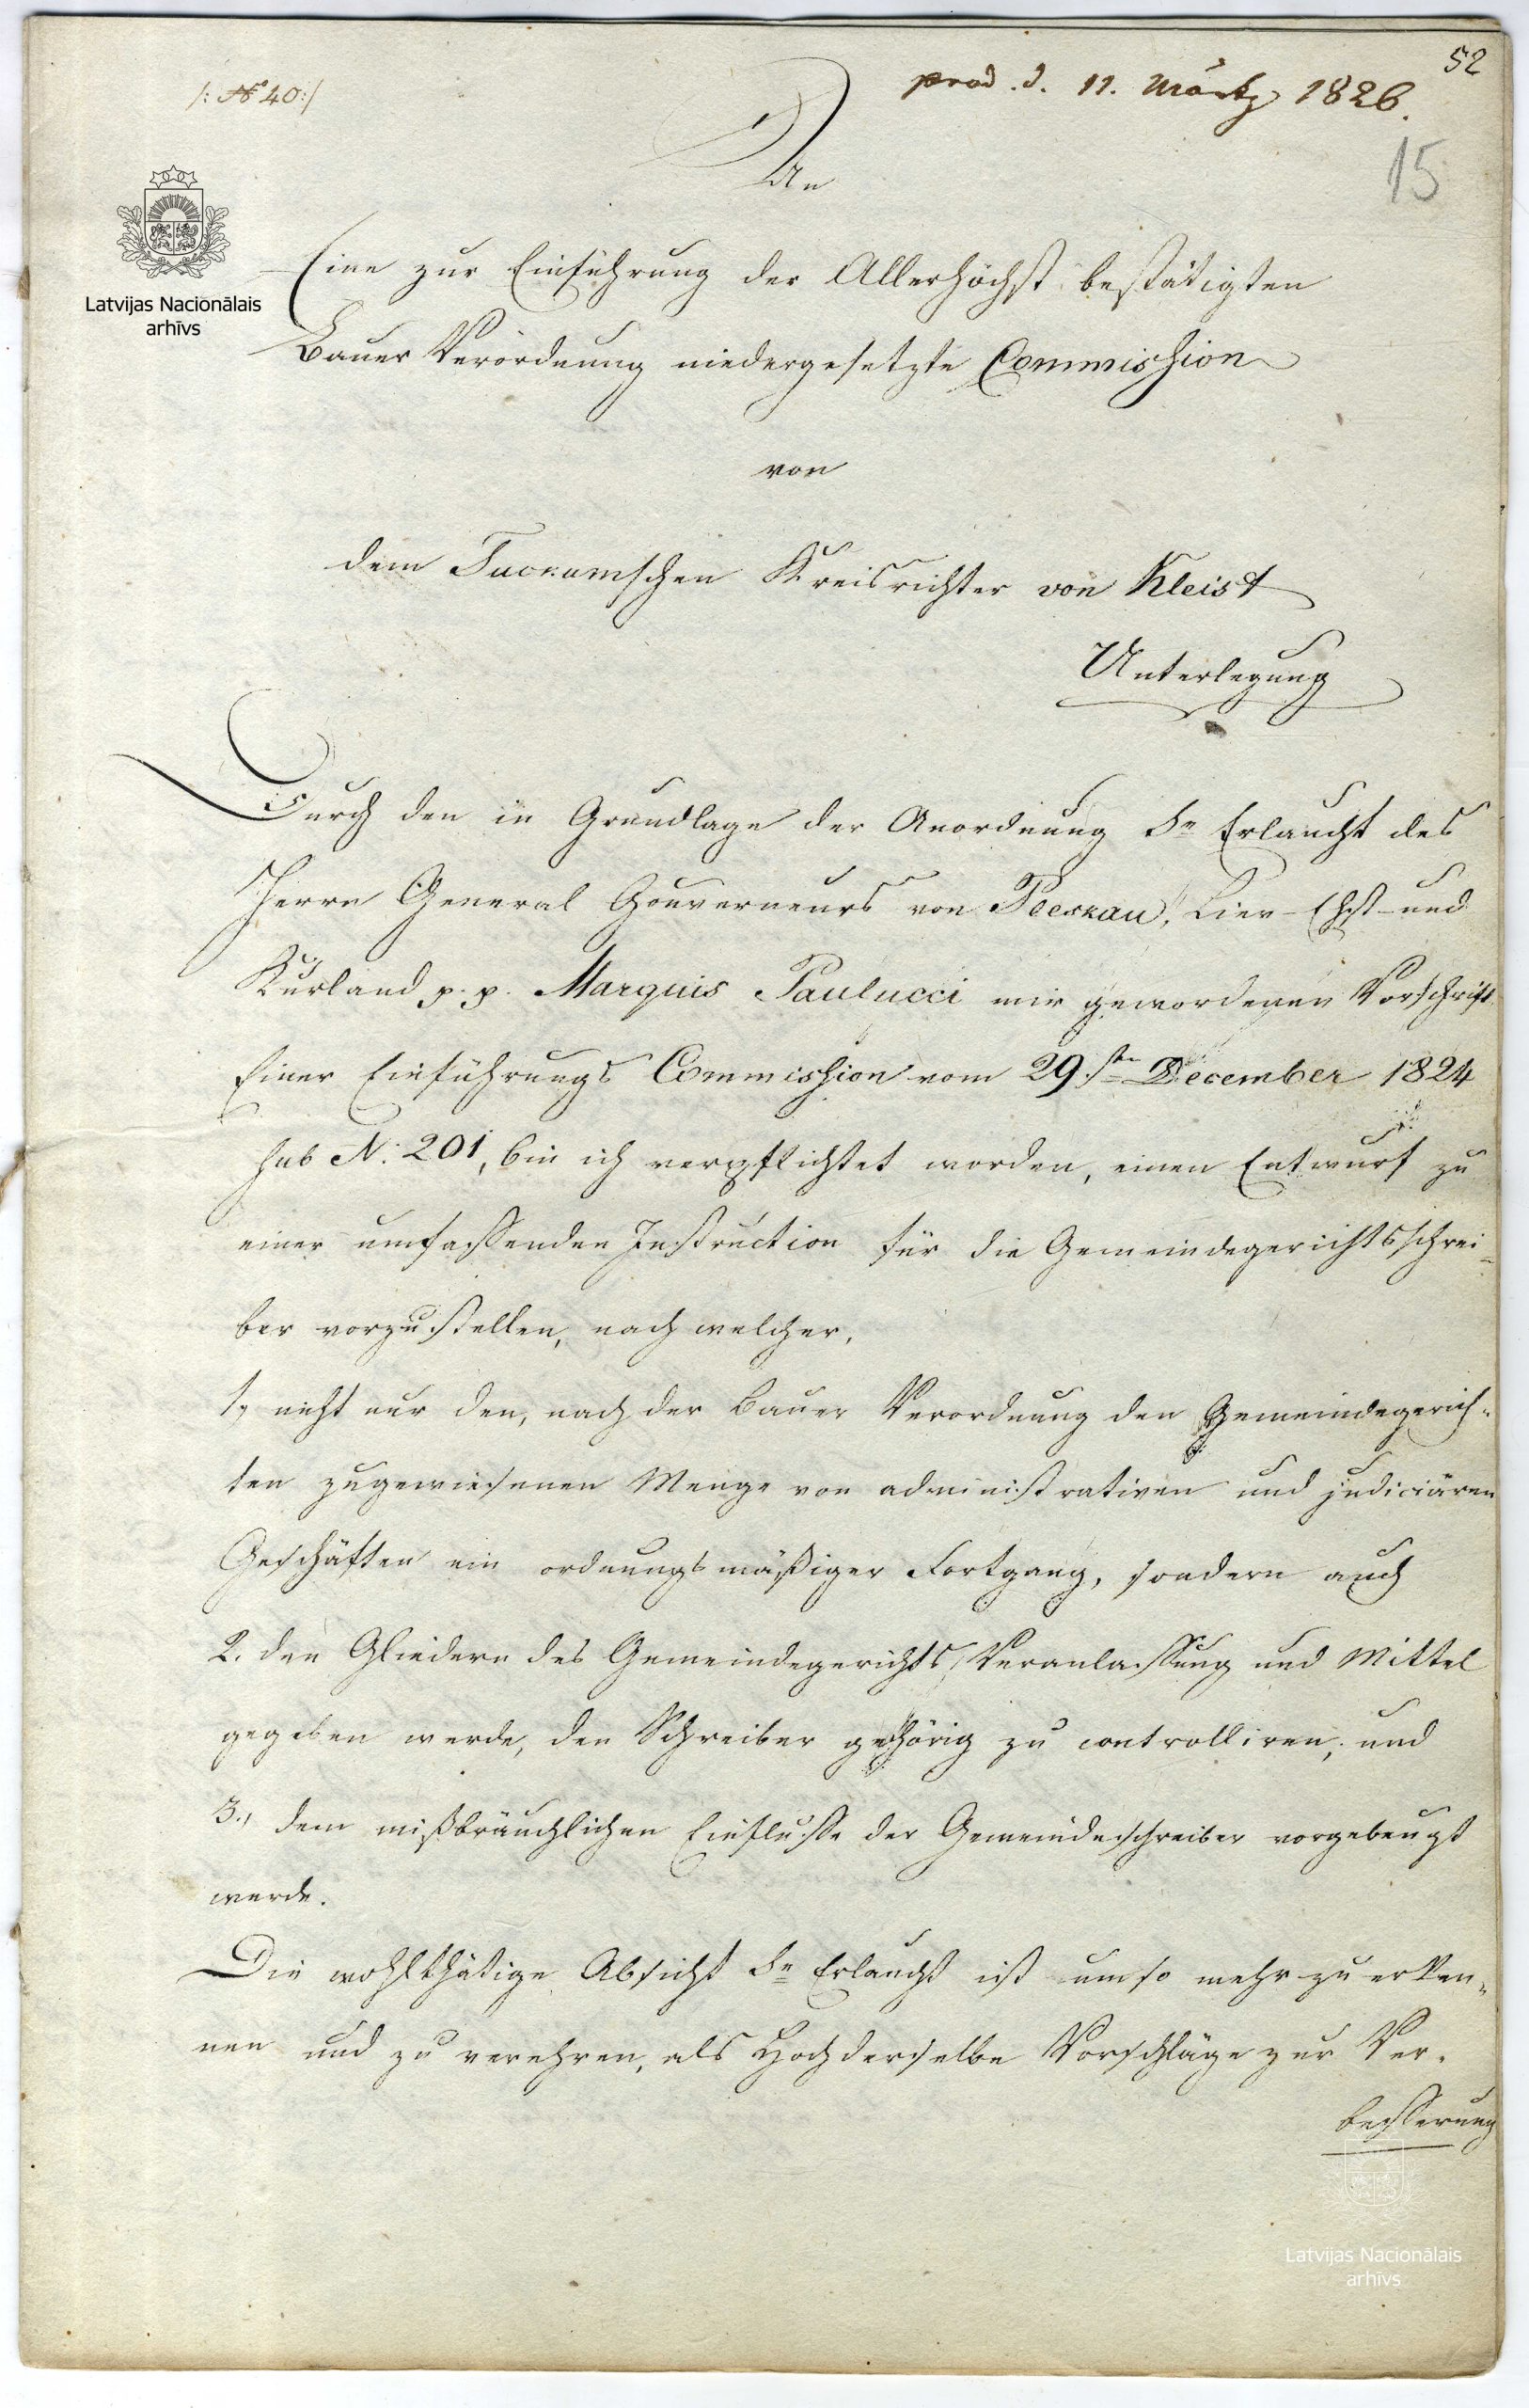 52
/: № 40:/
prod. d. 11. Märtz 1826.
15
An
Latvijas Nacionālais
arhīvs
Eine zur Einführung der Allerhöchst bestätigten
Bauer Verordnung niedergesetzte Commission
von
dem Tuckumschen Kreisrichter von Kleist
Unterlegung
Durch den in Grundlage der Anordnung Sr Erlaucht des
Herrn General Gouverneurs von Pleskau, Liev- Ehst- und
Kurland p. p. Marquis Paulucci mir gewordenen Vorschrift
Einer Einführungs Commission vom 29.ten December 1824
sub N: 201, bin ich verpflichtet worden, einen Entwurf zu
einer umfassenden Instruction für die Gemeindegerichtsschrei-
ber vorzustellen, nach welcher,
1, nicht nur den, nach der Bauer Verordnung den Gemeindegerich-
ten zugewiesenen Menge von administrativen und judiciären
Geschäften ein ordnungsmäßiger Fortgang, sondern auch
2. den Gliedern des Gemeindegerichts, Veranlassung und Mittel
gegeben werde, den Schreiber gehörig zu controlliren, und
3., dem mißbräuchlichen Einflusse der Gemeindeschreiber vorgebeugt
werde.
Die wohlthätige Absicht Sr Erlaucht ist um so mehr zu erken-
nen und zu verehren, als Hochderselbe Vorschläge zur Ver-
besserung
Latvijas Nacionālais
arhīvs